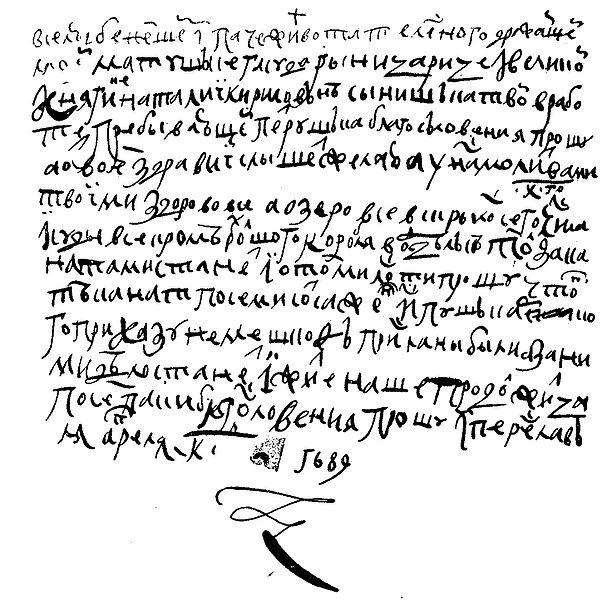 +
вселюбезнешеі і паче живота телесного дражаѣшеі
моеі матушьке гасударыни царице і великоі
княгине наталиї кириловънѣ сынишъка твоі в рабо
те пребываюшеі петрушъка благословения прошу
а о твоем здравиї слышеть желаю а у нас молитвами
твоїми здорово все а озеро все вскрылось сего 20 числа
и суды все кромѣ болшого корабля в отдѣлкѣ толко за кана
натами станеть і о том милости прошу чтоб
тѣ канаты по семисот сажен ис пушъкарского
приказу не мешкоѳ присланы были а за ни
ми дѣло станеть і житие наше продолжитца
по сем паки благословения прошу іс переславля
апреля к.
1689